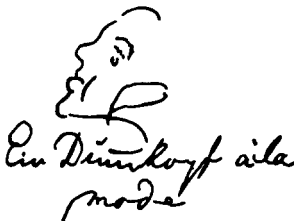 Ein Dummkopf à la
mode